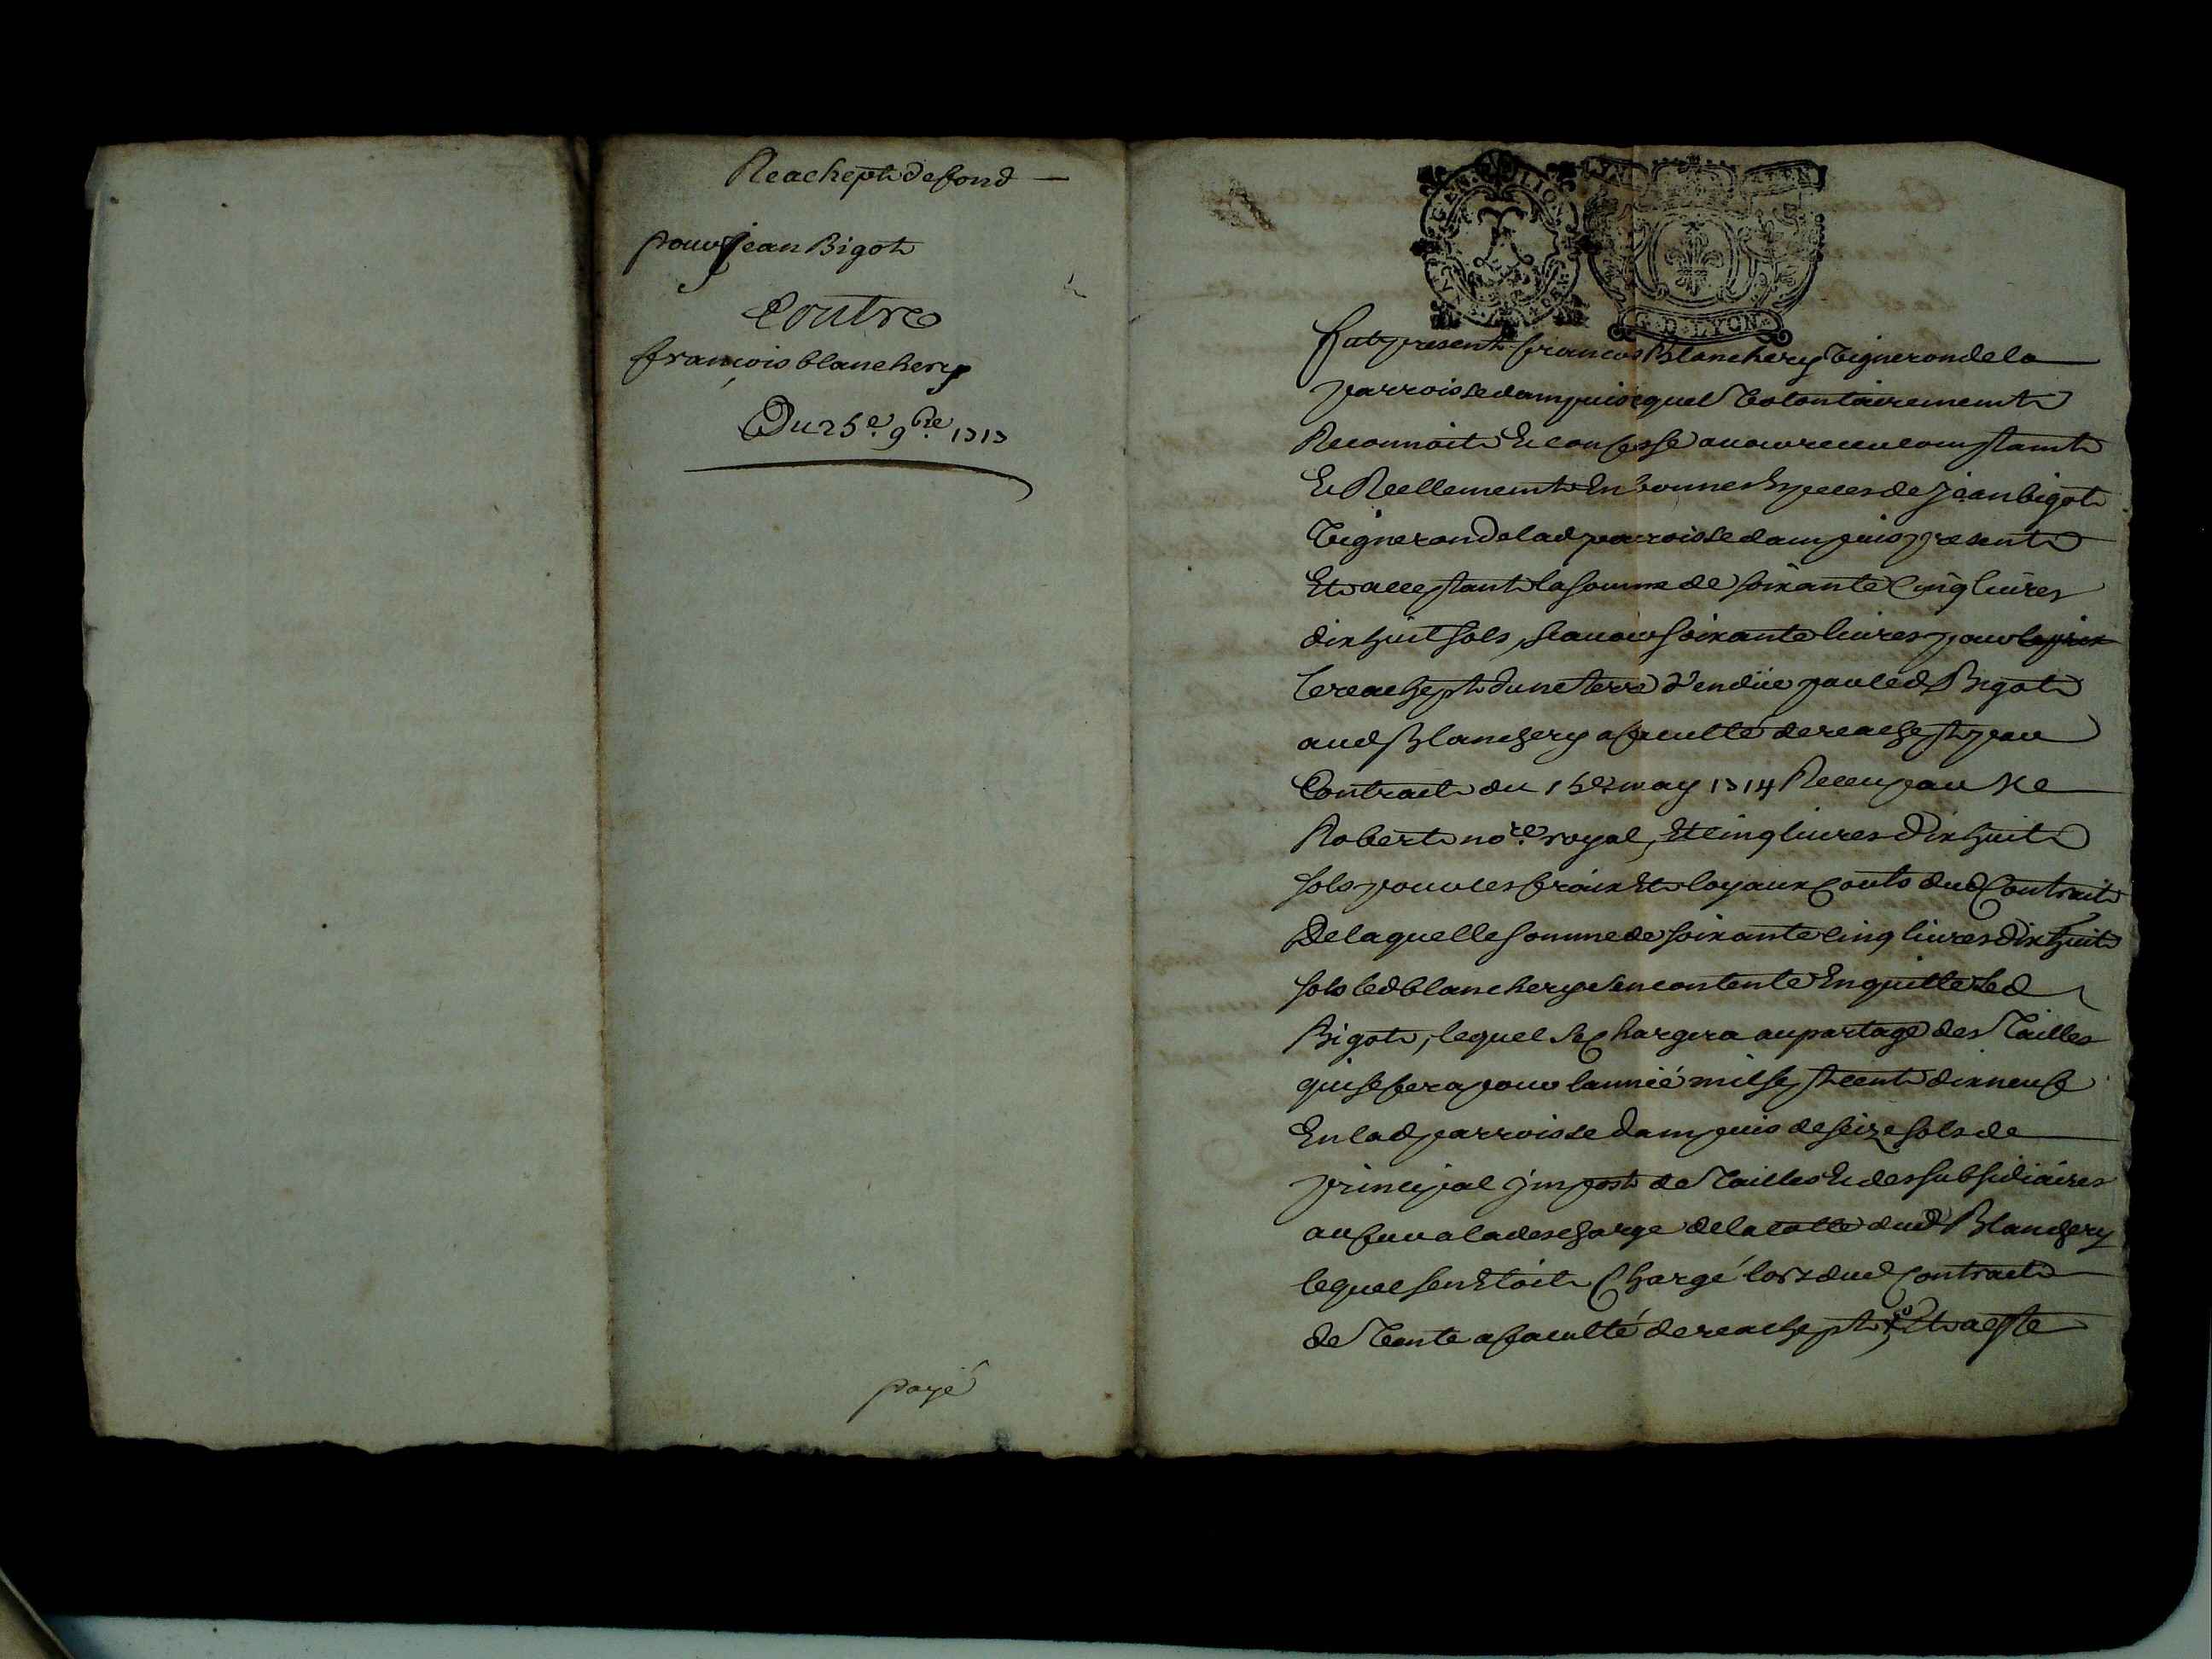 Reachept de fond
pour Jean Bigot
Contre
francois blanchery
Du 25e. 9bre. 1717
payé
GEN D LYON
G. D. LYON
fut present francois Blanchery Vigneron de la
parroisse dampuis lequel Volontairement
Reconnoit Et confesse auoir receu comptamt
Et Reellement En bonnes Especes de Jean bigot
Vigneron de lad parroisse dampuis present
Et acceptant la somme de soixante Cinq liures
dix huit sols, scauoir soixante liures pour le prix
le reachept dune terre Vendüe par led Bigot
aud Blanchery a faculté de reachept par
Contract du 15e may 1714 Receu par Me
Robert nore. royal, Et cinq liures dix huit
sols pour les fraix Et loyaux Couts dud Contract
De laquelle somme de soixante cinq liures dix huit
sols led blanchery sen contente En quitte led
Bigot, lequel se Chargera au partage des Tailles
qui se fera pour lanneé mil sept cent dix neuf
En lad parroisse dampuis de seize sols de
principal jmpost de Tailles Et des subsidiaires
au fur a la descharge de la cotte dud Blanchery
lequel sen Etoit Chargé lors dud Contract
de Vente a faculté de reachept, Et a este